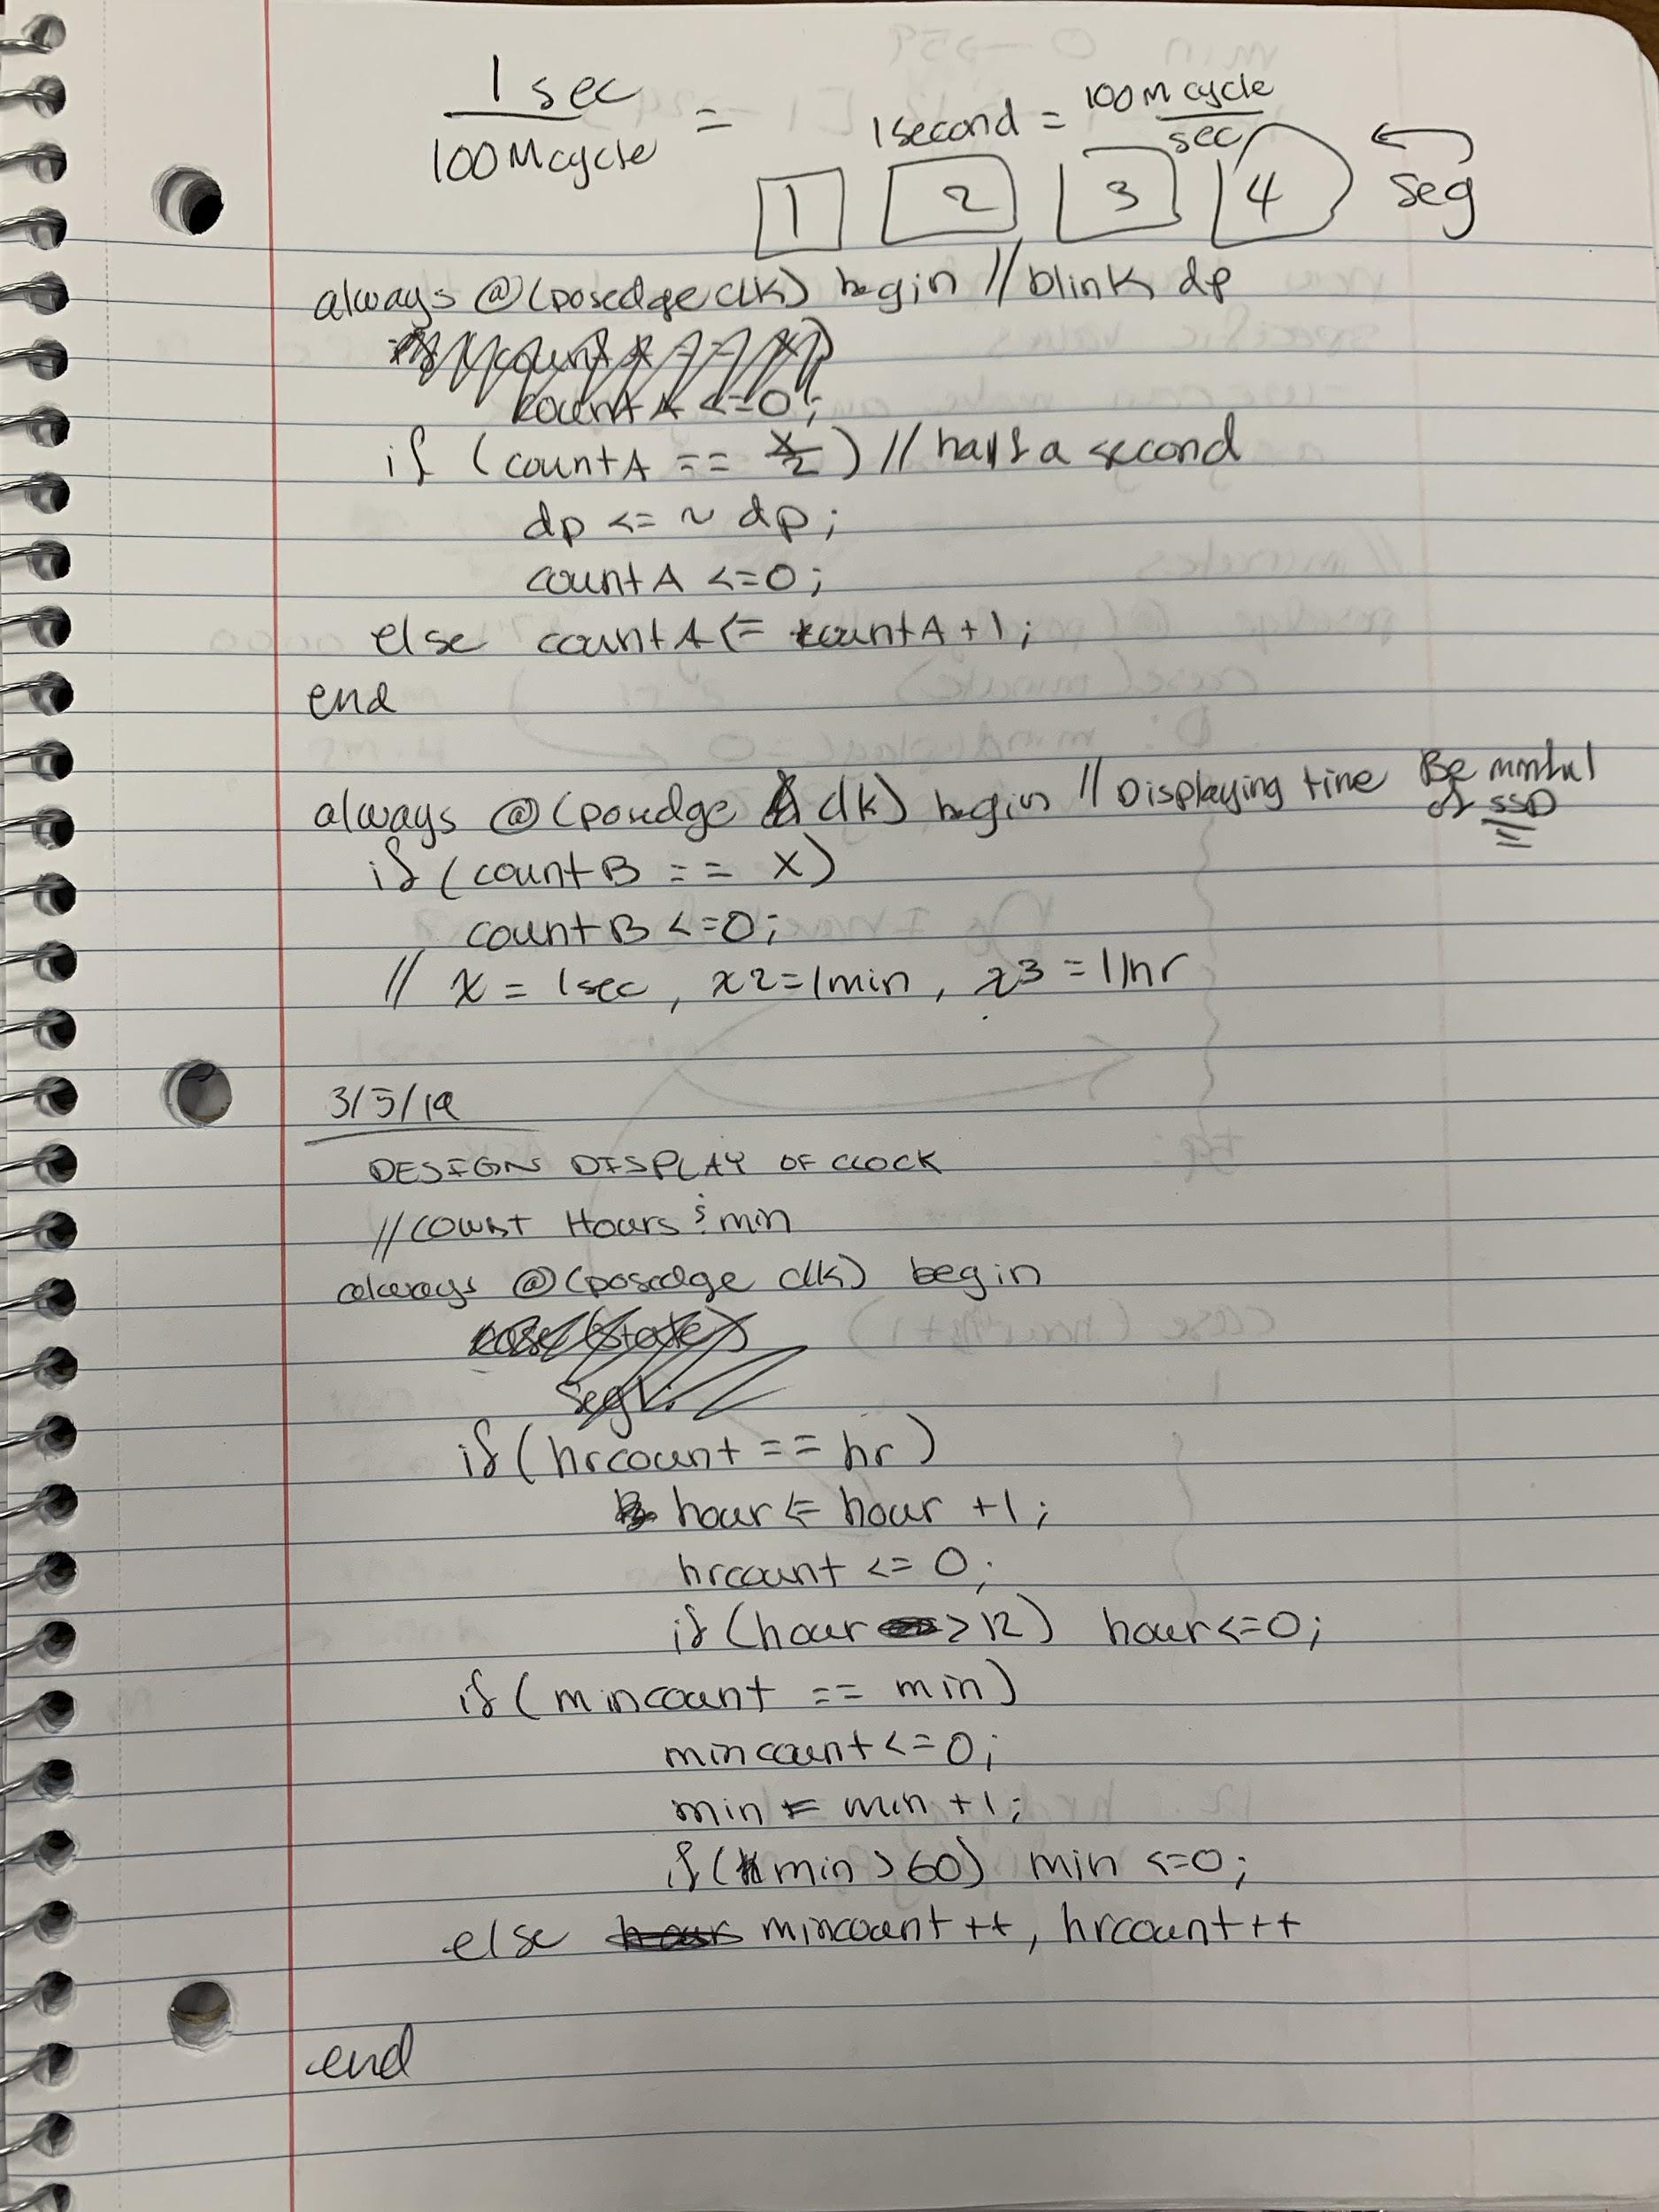 1 sec
100 M cycle =
1 second = 100 M cycle
sec
1 2 3 4 seg
always @ (posedge clk) begin // blink dp
countA <=0;
if (countA == x/2) // half a second
dp <= ~ dp;
countA <=0;
else countA <= countA +1;
end
always @ (posedge clk) begin // Displaying time Be mindful
of SSD
if (countB == x)
countB <=0;
// x = 1sec, x2=1min, x3 = 1hr
3/5/19
DESIGN DISPLAY OF CLOCK
// COUNT Hours & min
always @ (posedge clk) begin
case (state)
seg1:
if (hrcount == hr)
hour <= hour +1;
hrcount <= 0;
if (hour > 12) hour <=0;
if (mincount == min)
mincount <=0;
min <= min +1;
if (min > 60) min <=0;
else mincount ++, hrcount ++
end